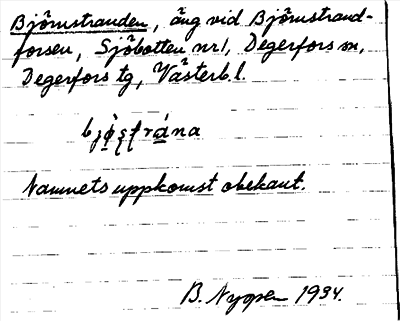 Björnstranden, äng vid Björnstrand-
forsen, Sjöbotten nr 1, Degerfors sn,
Degerfors tg, Västerb. l.
Namnets uppkomst obekant.
B. Nygren 1934.